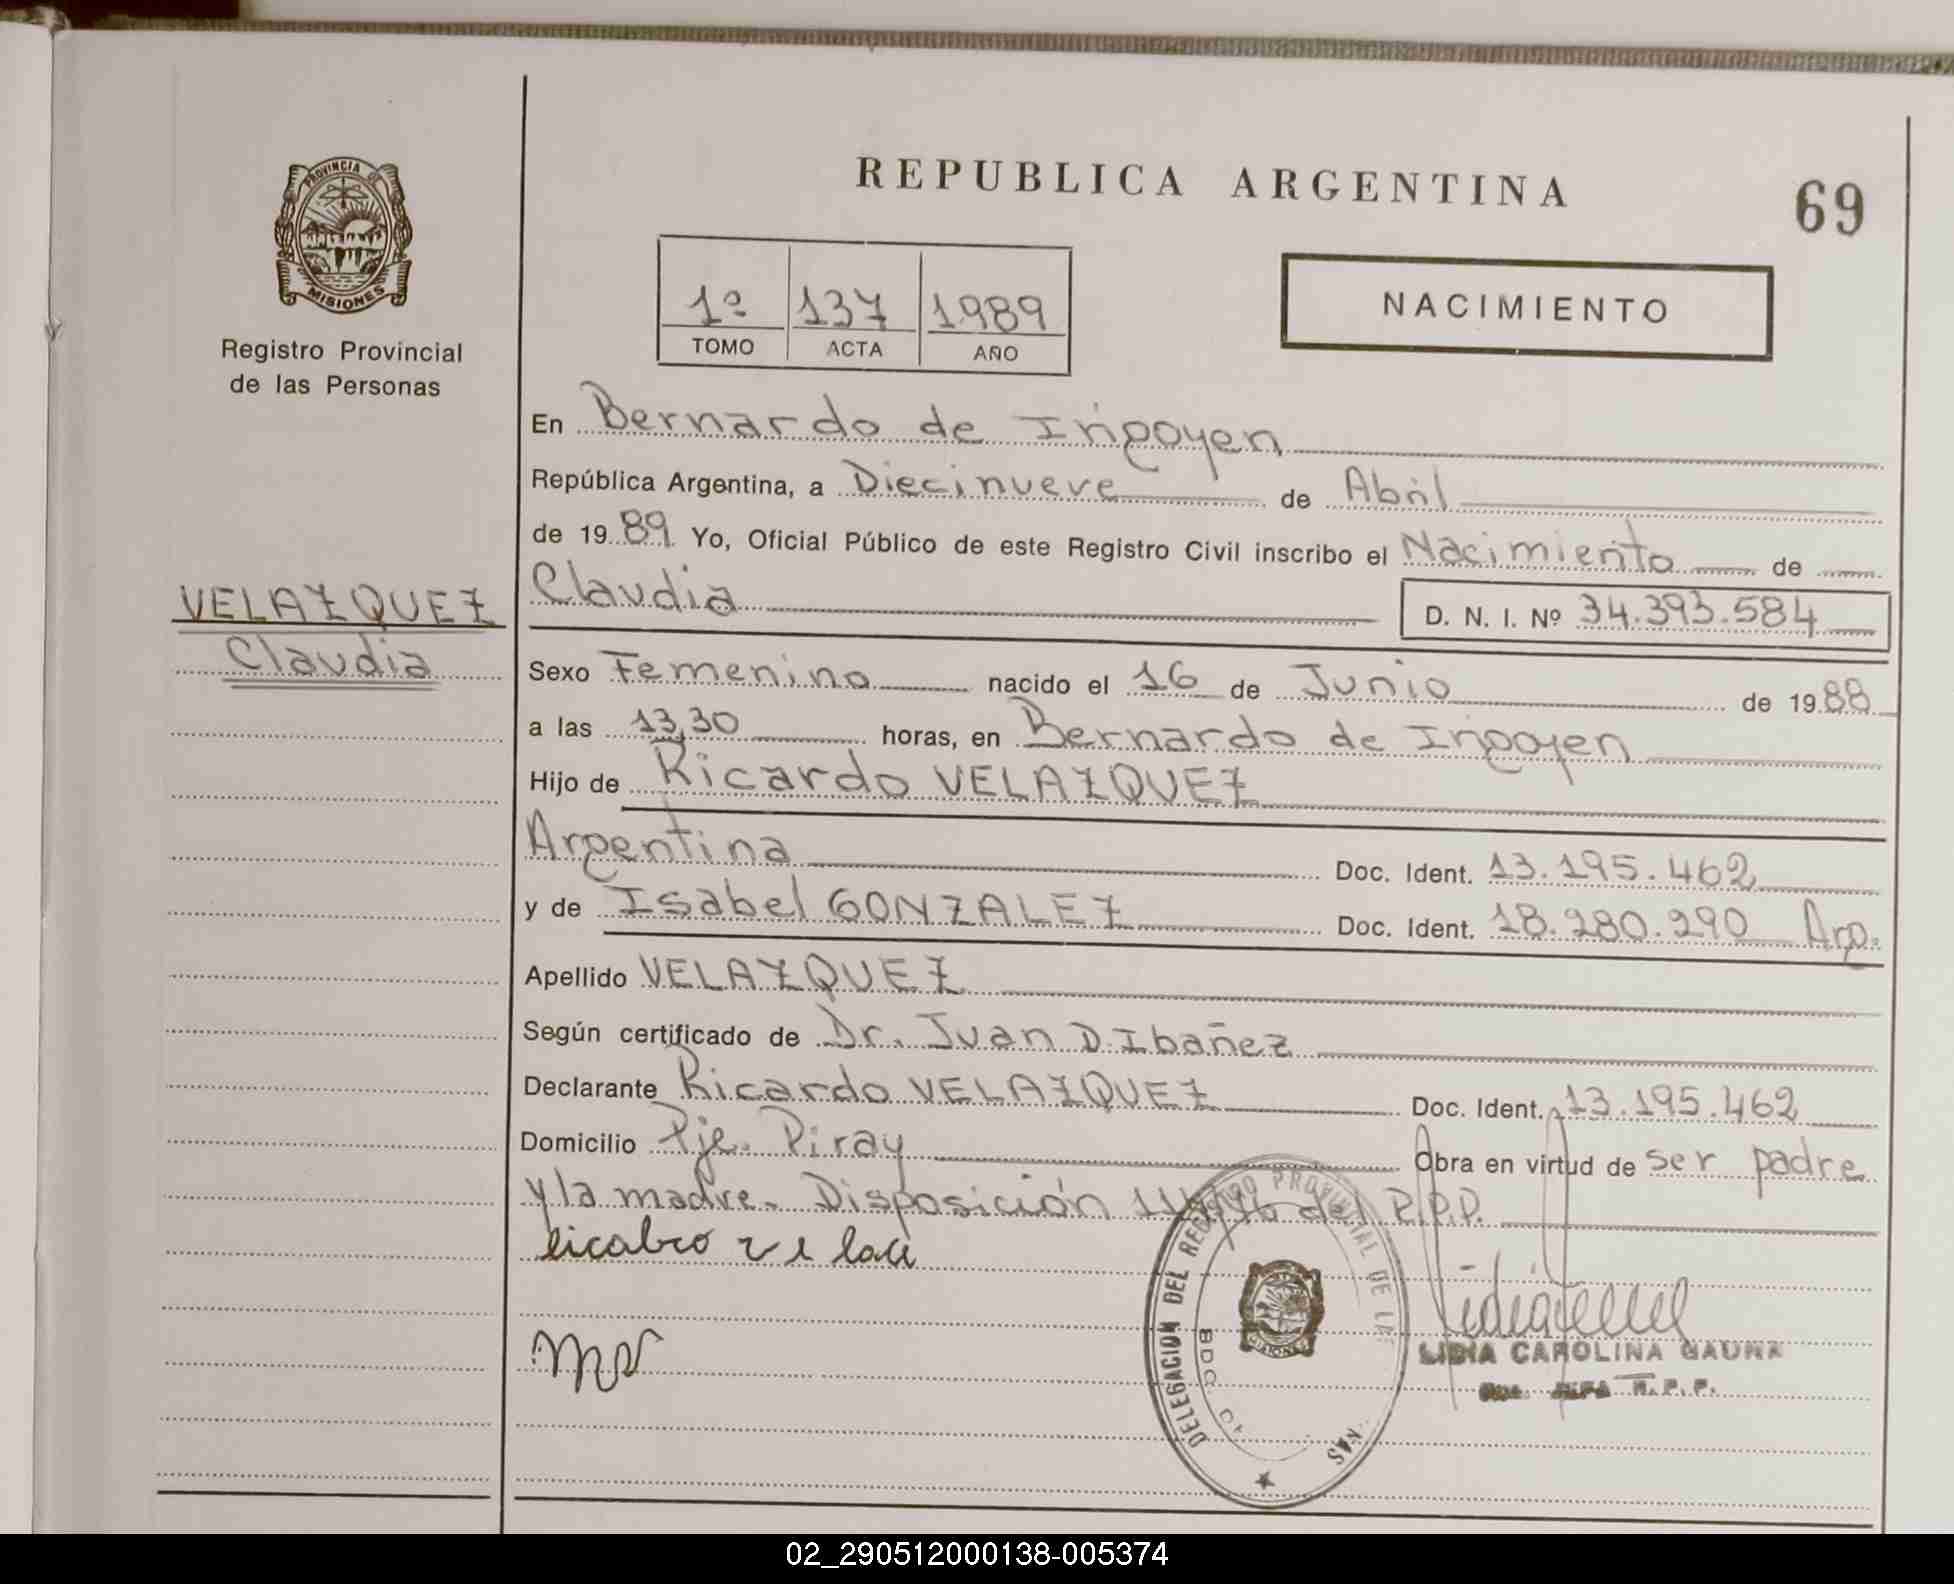 PROVINCIA DE
MISIONES
Registro Provincial
de las Personas
VELAZQUEZ
Claudia
REPUBLICA ARGENTINA
69
1º 137 1989
TOMO ACTA AÑO
NACIMIENTO
En Bernardo de Irigoyen
República Argentina, a Diecinueve de Abril
de 1989 Yo, Oficial Público de este Registro Civil inscribo el Nacimiento de
Claudia D. N. I. Nº 34.393.584
Sexo Femenino nacido el 16 de Junio de 1988
a las 13,30 horas, en Bernardo de Irigoyen
Hijo de Ricardo VELAZQUEZ
Argentina Doc. Ident. 13.195.462
y de Isabel GONZALEZ Doc. Ident. 18.280.290 Arg.
Apellido VELAZQUEZ
Según certificado de Dr. Juan D. Ibañez
Declarante Ricardo VELAZQUEZ Doc. Ident. 13.195.462
Domicilio Pje. Piray Obra en virtud de ser padre
y la madre. Disposición del R.P.P.
DELEGACION DEL REGISTRO PROVINCIAL DE LA
LIDIA CAROLINA GAUNA
JEFA R.P.P.
02_290512000138-005374